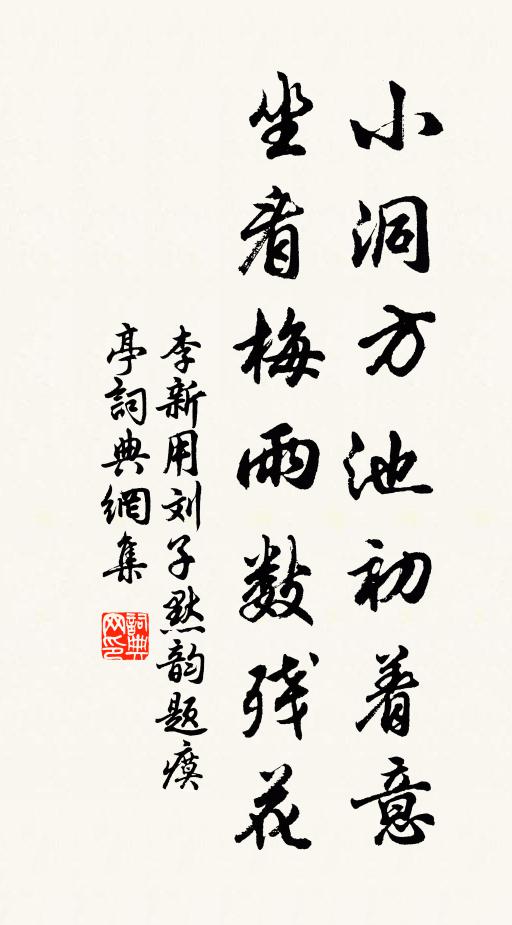 小洞方池初着意
坐看梅雨数残花
李新用刘子默韵题瘼
亭詞典網集
詞典
网印